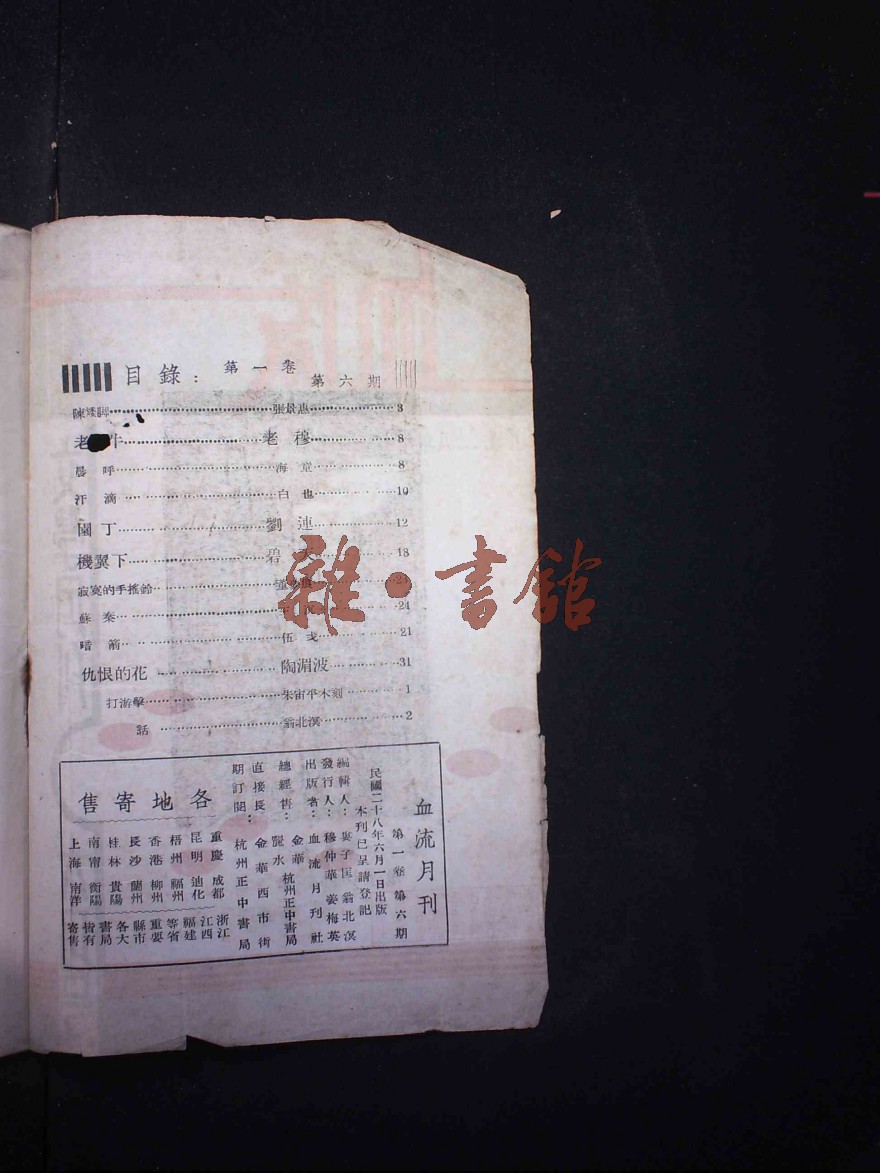 目錄：第一卷 第六期
陳矮脚 張景惠 3
老 牛 老穆 8
晨呼 海童 8
汗滴 白也 10
園丁 劉連 12
機翼下 碧 18
寂寞的手搖鈴 21
蘇秦 24
暗箭 伍戈 21
仇恨的花 陶湄波 31
打游擊 朱宙平木刻 1
話 翁北溟 2
血流月刊
第一卷第六期
民國二十八年六月一日出版
本刊已呈請登記
編輯人：子匡 翁北溟
發行人：穆仲華 姜梅英
出版者：血流月刊社
總經售：金華 麗水 杭州正中書局
直接長期訂閱：金華西市街 杭州正中書局
各地寄售
重慶 成都
昆明 迪化
梧州 福州
香港 柳州
長沙 蘭州
桂林 貴陽
南甯 衡陽
上海 南洋
浙江 江西 福建 等省 重要 縣市 各大 書局 皆有 寄售
雜·書館